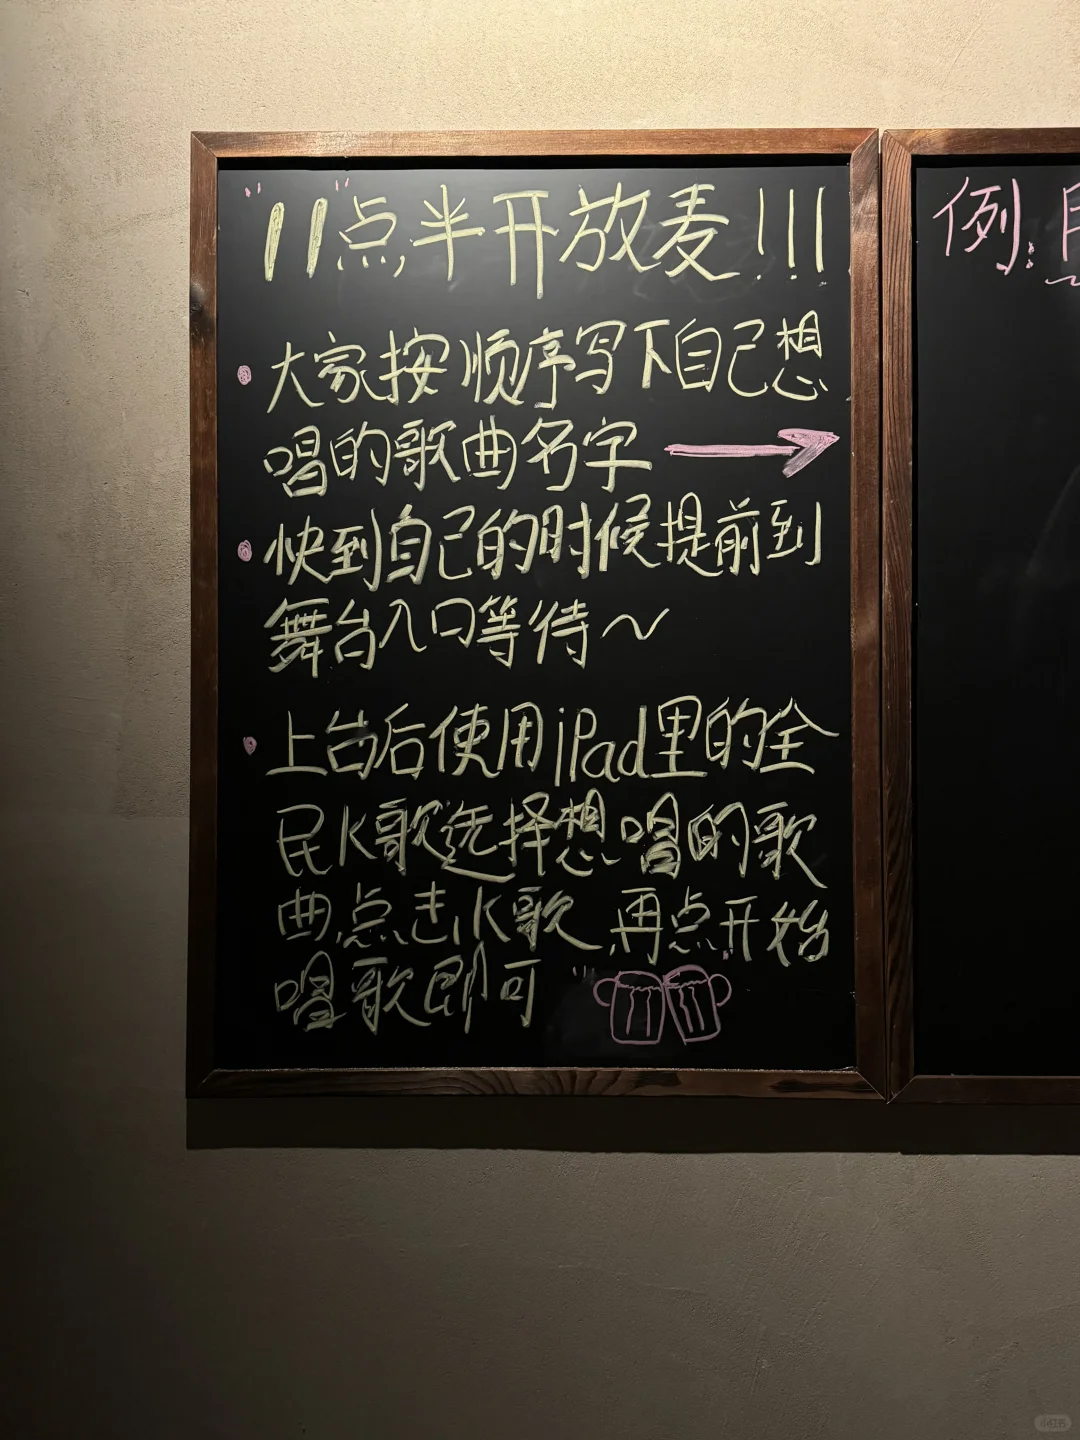 "11"点半开放麦!!!
大家按顺序写下自己想
唱的歌曲名字
快到自己的时候提前到
舞台入口等待～
上台后使用iPad里的全
民K歌选择想唱的歌
曲,点击K歌,再点开始
唱歌即可"
例: